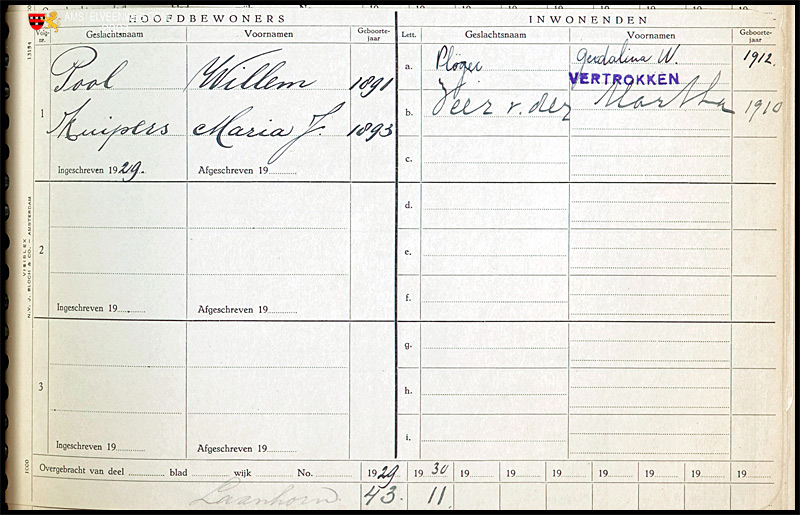 AMSTELVEEN
HOOFDBEWONERS
INWONENDEN
Volg-nr.
Geslachtsnaam
Voornamen
Geboorte-jaar
Lett.
Geslachtsnaam
Voornamen
Geboorte-jaar
1
Pool Willem 1891
Kuipers Maria J. 1893
Ingeschreven 1929.
Afgeschreven 19
a. Plöger Gerdalina W. 1912
VERTROKKEN
b. Veer v. der Martha 1910
c.
2
Ingeschreven 19
Afgeschreven 19
d.
e.
f.
3
Ingeschreven 19
Afgeschreven 19
g.
h.
i.
Overgebracht van deel blad wijk No. 1929 1930 19 19 19 19 19 19 19
Laanhorn 43. 11
13154
N.V. J. BLOCH & CO. — AMSTERDAM
VISIBLEX